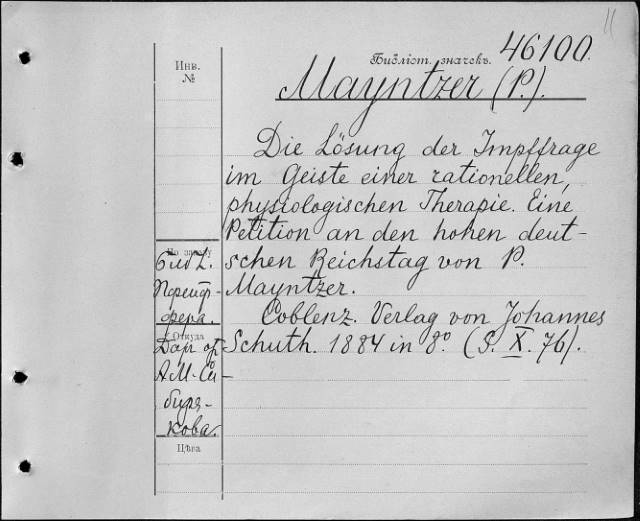 11
Инв.
№
Библіот. значекъ. 46100.
Mayntzer (P.).
Die Lösung der Impffrage
im Geiste einer rationellen,
physiologischen Therapie. Eine
Petition an den hohen deut-
schen Reichstag von P.
Mayntzer.
Coblenz. Verlag von Johannes
Schuth. 1884 in 8º. (S. X. 76).
По заказу
Библ.
Пфейф-
фера.
Откуда
Дар от
А. М. Си-
биря-
кова.
Цѣна